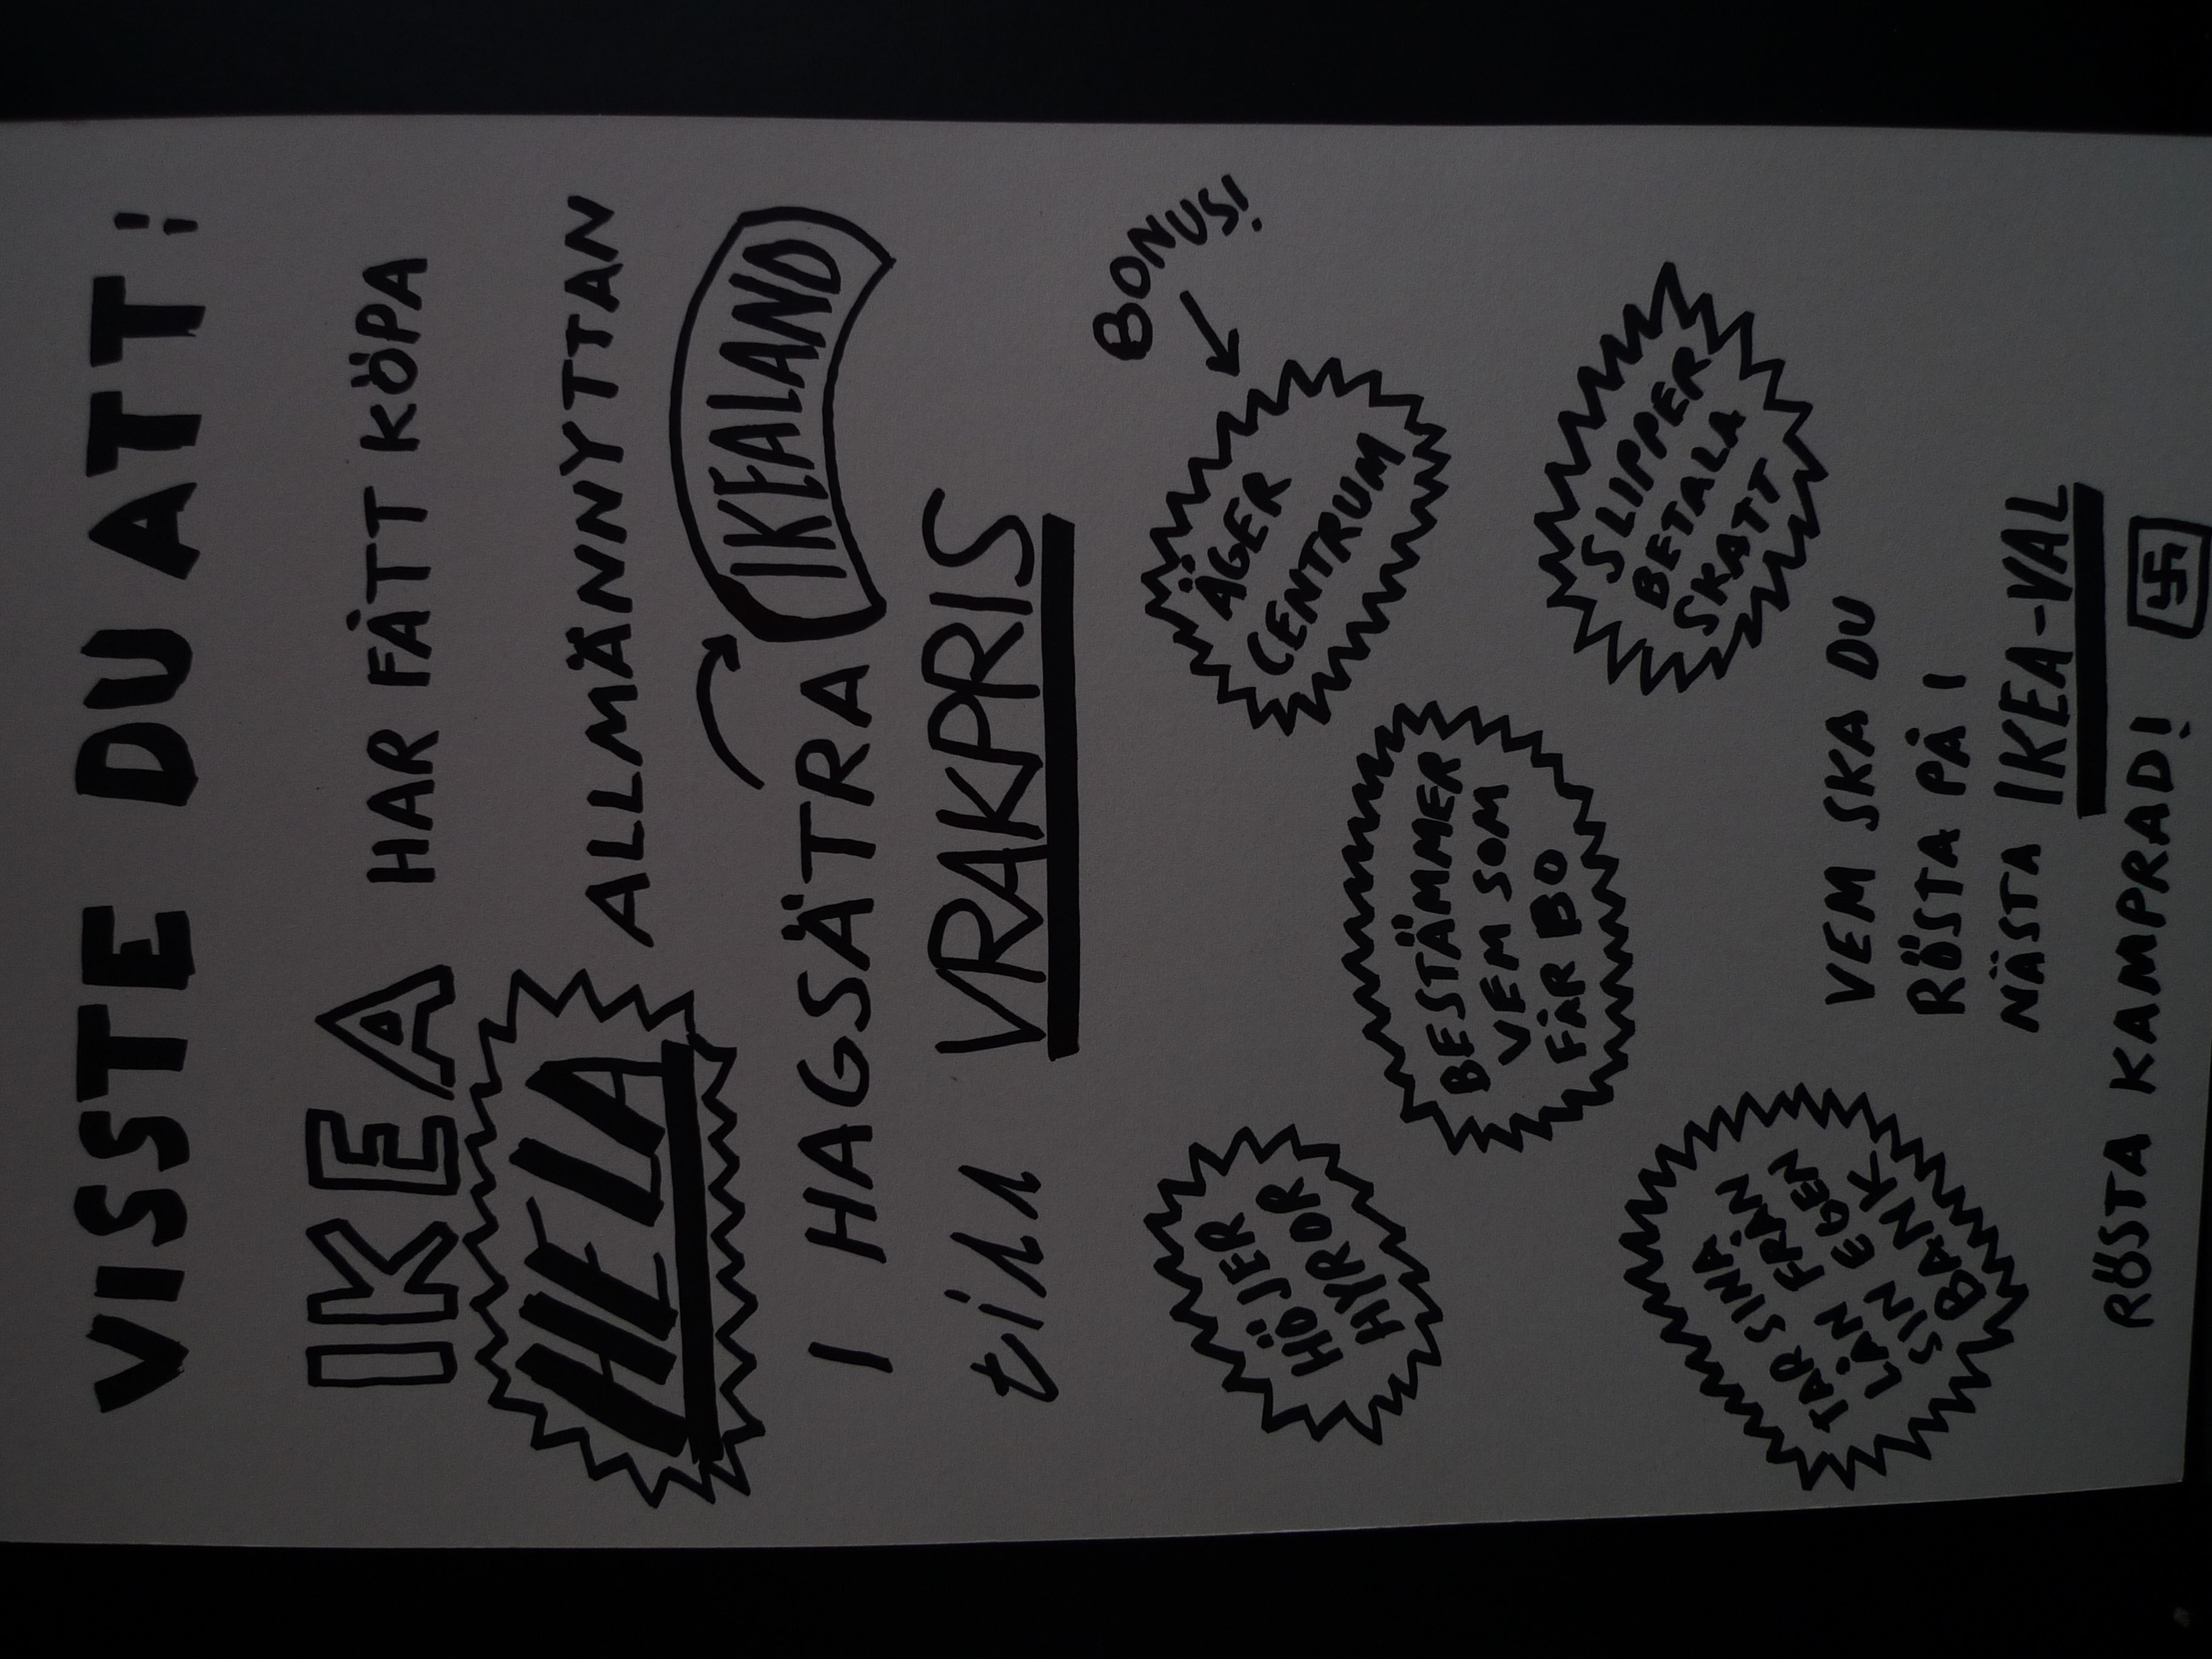 VISTE DU ATT!
IKEA HAR FÅTT KÖPA
HELA ALLMÄNNYTTAN
I HAGSÄTRA IKEALAND
till VRAKPRIS
BONUS!
HÖJER
HYROR
ÄGER
CENTRUM
BESTÄMMER
VEM SOM
FÅR BO
TAR SINA
LÅN FRÅN
SIN EGEN
BANK
SLIPPER
BETALA
SKATT
VEM SKA DU
RÖSTA PÅ I
NÄSTA IKEA-VAL
RÖSTA KAMPRAD!